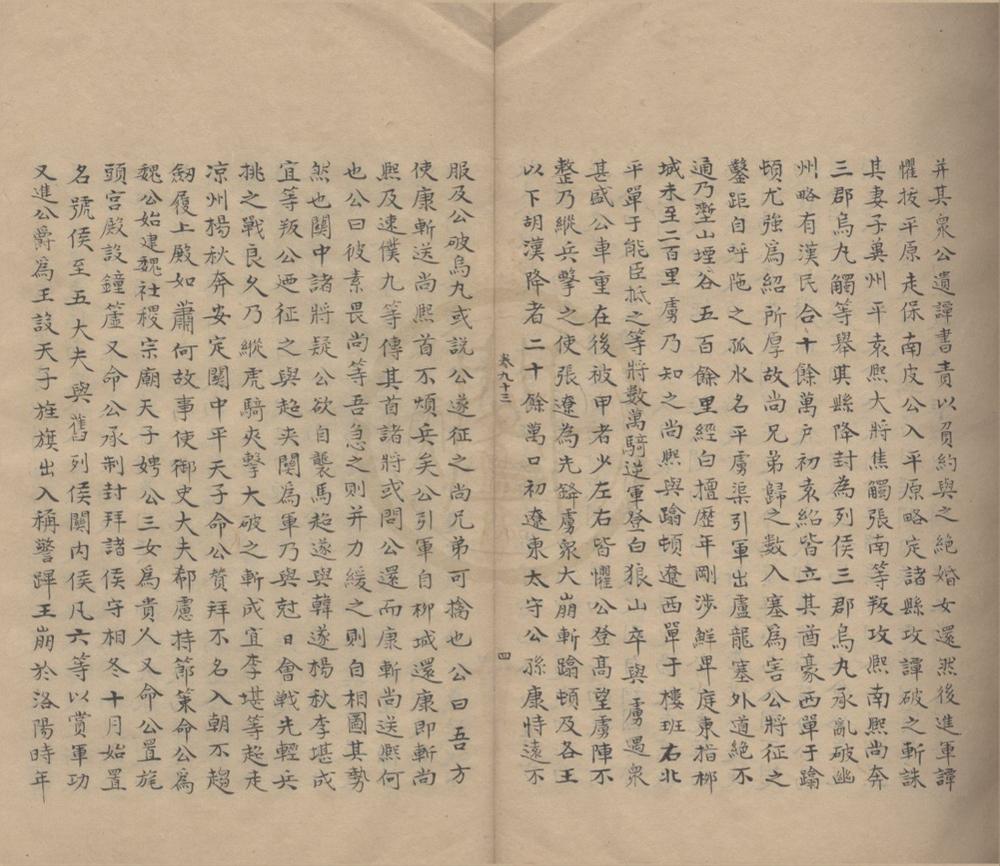 并其衆公遺譚書責以負約與之絶婚女還然後進軍譚
懼拔平原走保南皮公入平原略定諸縣攻譚破之斬誅
其妻子兾州平袁熙大將焦觸張南等叛攻熙南熙尚奔
三郡烏丸觸等舉其縣降封為列侯三郡烏丸承亂破幽
州略有漢民合十餘萬户初袁紹皆立其酋豪西單于蹋
頓尤強為紹所厚故尚兄弟歸之数入塞為害公將征之
鑿距自呼陁之孤水名平虜渠引軍出盧龍塞外道絶不
通乃塹山堙谷五百餘里經白擅歴年剛涉鮮卑庭東指柳
城未至二百里虜乃知之尚熙與蹋頓遼西單于樓班右北
平單于能臣抵之等將數萬騎逆軍登白狼山卒與虜遇衆
甚盛公車重在後被甲者少左右皆懼公登髙望虜陣不
整乃縱兵擊之使張遼為先鋒虜衆大崩斬蹋頓及各王
以下胡漢降者二十餘萬口初遼東太守公孫康恃遠不
卷九十三
四
服及公破烏九或説公遂征之尚兄弟可擒也公曰吾方
使康斬送尚熙首不煩兵矣公引軍自柳城還康即斬尚
熙及速僕九等傳其首諸將或問公還而康斬尚送熙何
也公曰彼素畏尚等吾急之則并力緩之則自相圖其勢
然也關中諸將疑公欲自襲馬超遂與韓遂楊秋李堪成
宜等叛公廼征之與超夾関為軍乃與尅日會戰先輕兵
挑之戰良久乃縱虎騎夾擊大破之斬成宜李堪等起走
凉州楊秋奔安定関中平天子命公贊拜不名入朝不趨
劒履上殿如蕭何故事使御史大夫郗慮持節策命公為
魏公始建魏社稷宗廟天子娉公三女為貴人又命公置旄
頭宮殿設鐘簴又命公承制封拜諸侯守相冬十月始置
名號侯至五大夫與舊列侯関内侯凡六等以賞軍功
又進公爵為王設天子旌旗出入稱警蹕王崩於洛陽時年